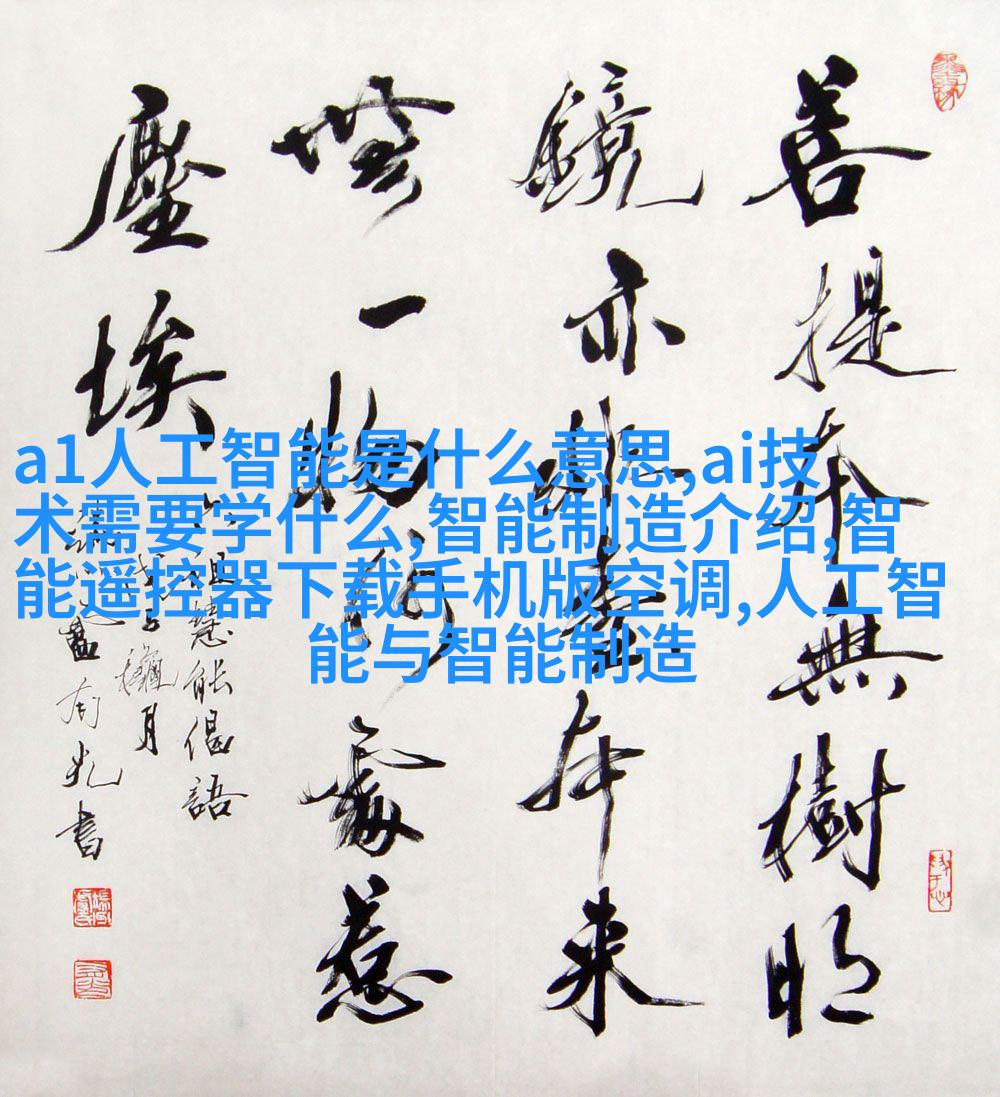 a1人工智能是什么意思,ai技
术需要学什么,智能制造介绍,智
能遥控器下载手机版空调,人工智
能与智能制造
菩提本無樹明
鏡亦非臺本来
無一物何處惹
塵埃
六祖慧能偈語
月
書